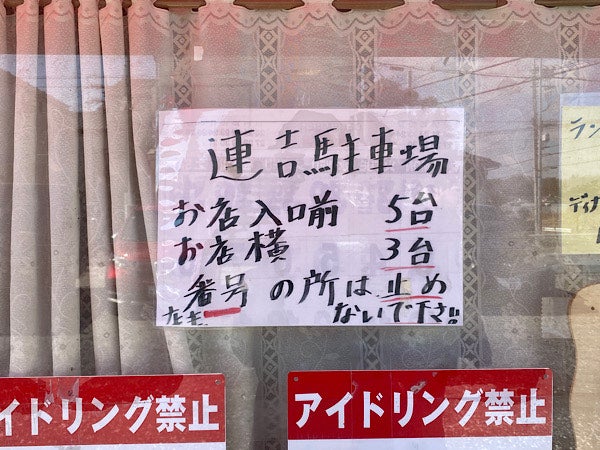 連吉駐車場
お店入口前 5台
お店横 3台
番号の所は止め
ないで下さい!!
ラン
ディナ
イドリング禁止
アイドリング禁止